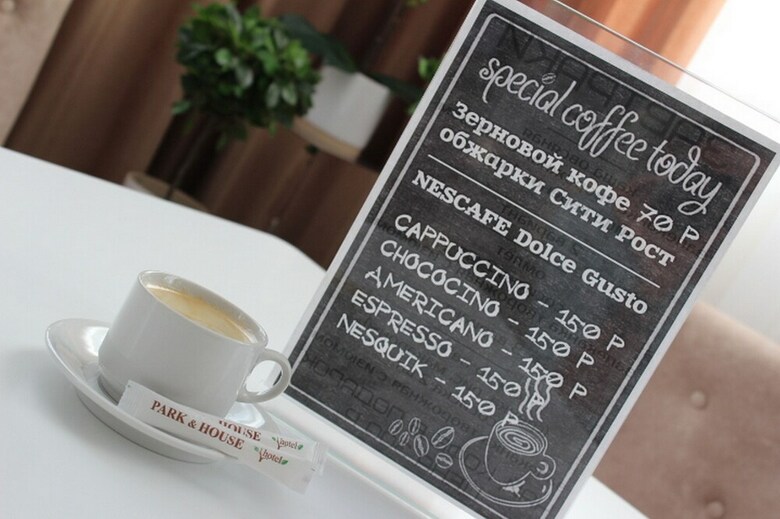 special coffee today
Зерновой кофе 70 Р
обжарки Сити Рост
NESCAFE Dolce Gusto
CAPPUCCINO - 150 Р
CHOCOCINO - 150 Р
AMERICANO - 150 Р
ESPRESSO - 150 Р
NESQUIK - 150 Р
HOUSE hotel
PARK & HOUSE hotel